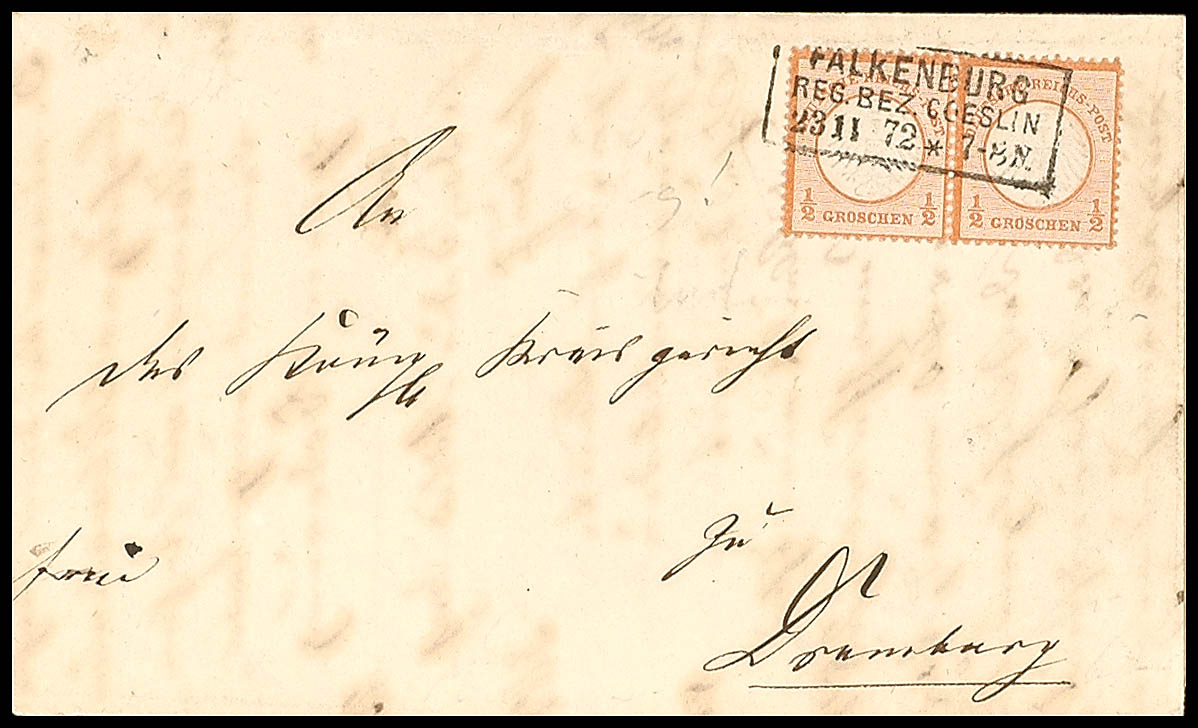 FALKENBURG
REG. BEZ. COESLIN
23 11 72 * 7-8 N.
REICHS-POST
½ GROSCHEN ½
½ GROSCHEN ½
An
das Königl Kreisgericht
frei
zu
Dramburg